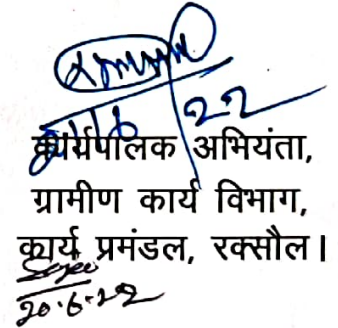 22
कार्यपालक अभियंता,
ग्रामीण कार्य विभाग,
कार्य प्रमंडल, रक्सौल।
20.6.22